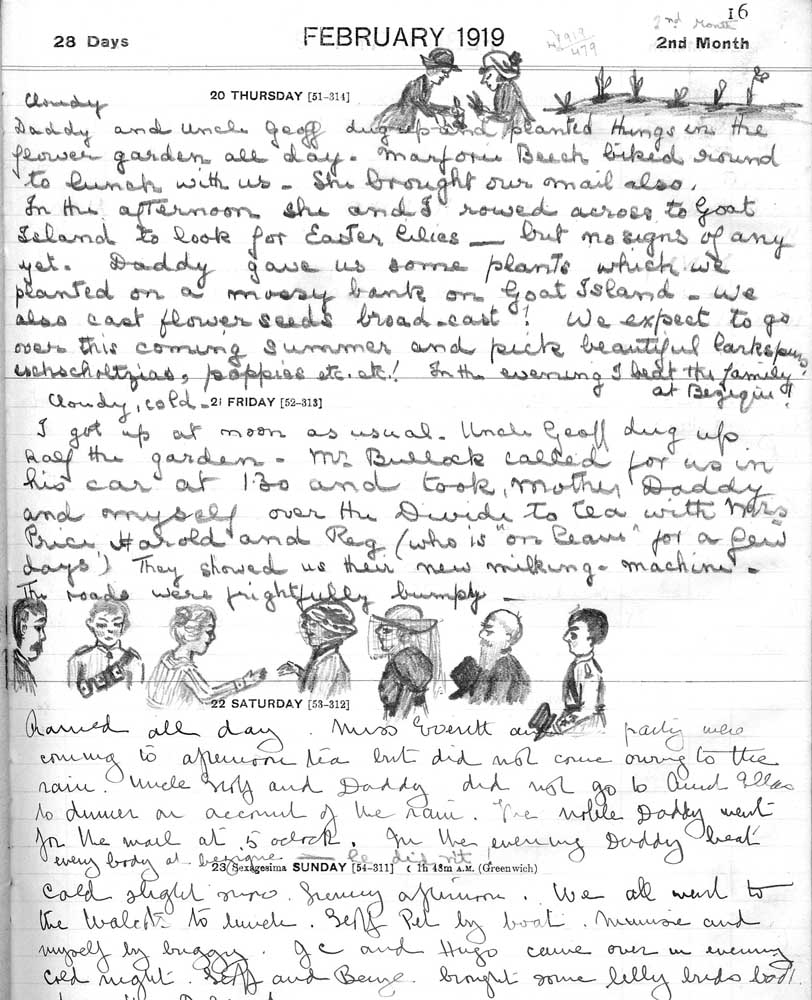 16
2nd Month
28 Days
FEBRUARY 1919
1919
479
2nd Month
20 THURSDAY [51-314]
Cloudy
Daddy and Uncle Geoff dug up and planted things in the
flower garden all day. Marjorie Beech biked round
to lunch with us - She brought our mail also.
In the afternoon she and I rowed across to Goat
Island to look for Easter lilies — but no signs of any
yet. Daddy gave us some plants which we
planted on a mossy bank on Goat Island - We
also cast flower seeds broad-cast! We expect to go
over this coming summer and pick beautiful larkspurs
eschscholtzias, poppies etc. etc.! In the evening I beat the family
at Bezique!
Cloudy, cold -
21 FRIDAY [52-313]
I got up at noon as usual. Uncle Geoff dug up
half the garden - Mr Bullock called for us in
his car at 1.30 and took, Mother, Daddy
and myself over the Divide to tea with Mrs
Price, Harold and Reg (who is "on leave" for a few
days) They showed us their new milking-machine -
The roads were frightfully bumpy -
22 SATURDAY [53-312]
Rained all day. Miss Everett and party were
coming to afternoon tea but did not come owing to the
rain. Uncle Geoff and Daddy did not go to Aunt Ellas
to dinner on account of the rain. The noble Daddy went
for the mail at 5 oclock. In the evening Daddy beat
every body at bezique — he did nt!
23 (Sexagesima SUNDAY [54-311] ☾ 1h 48m A.M. (Greenwich)
Cold slight snow. afternoon. We all went to
the to lunch. Geoff Pat by boat. and
myself by buggy. J C and Hugo came over in evening
cold night. Geoff and brought some